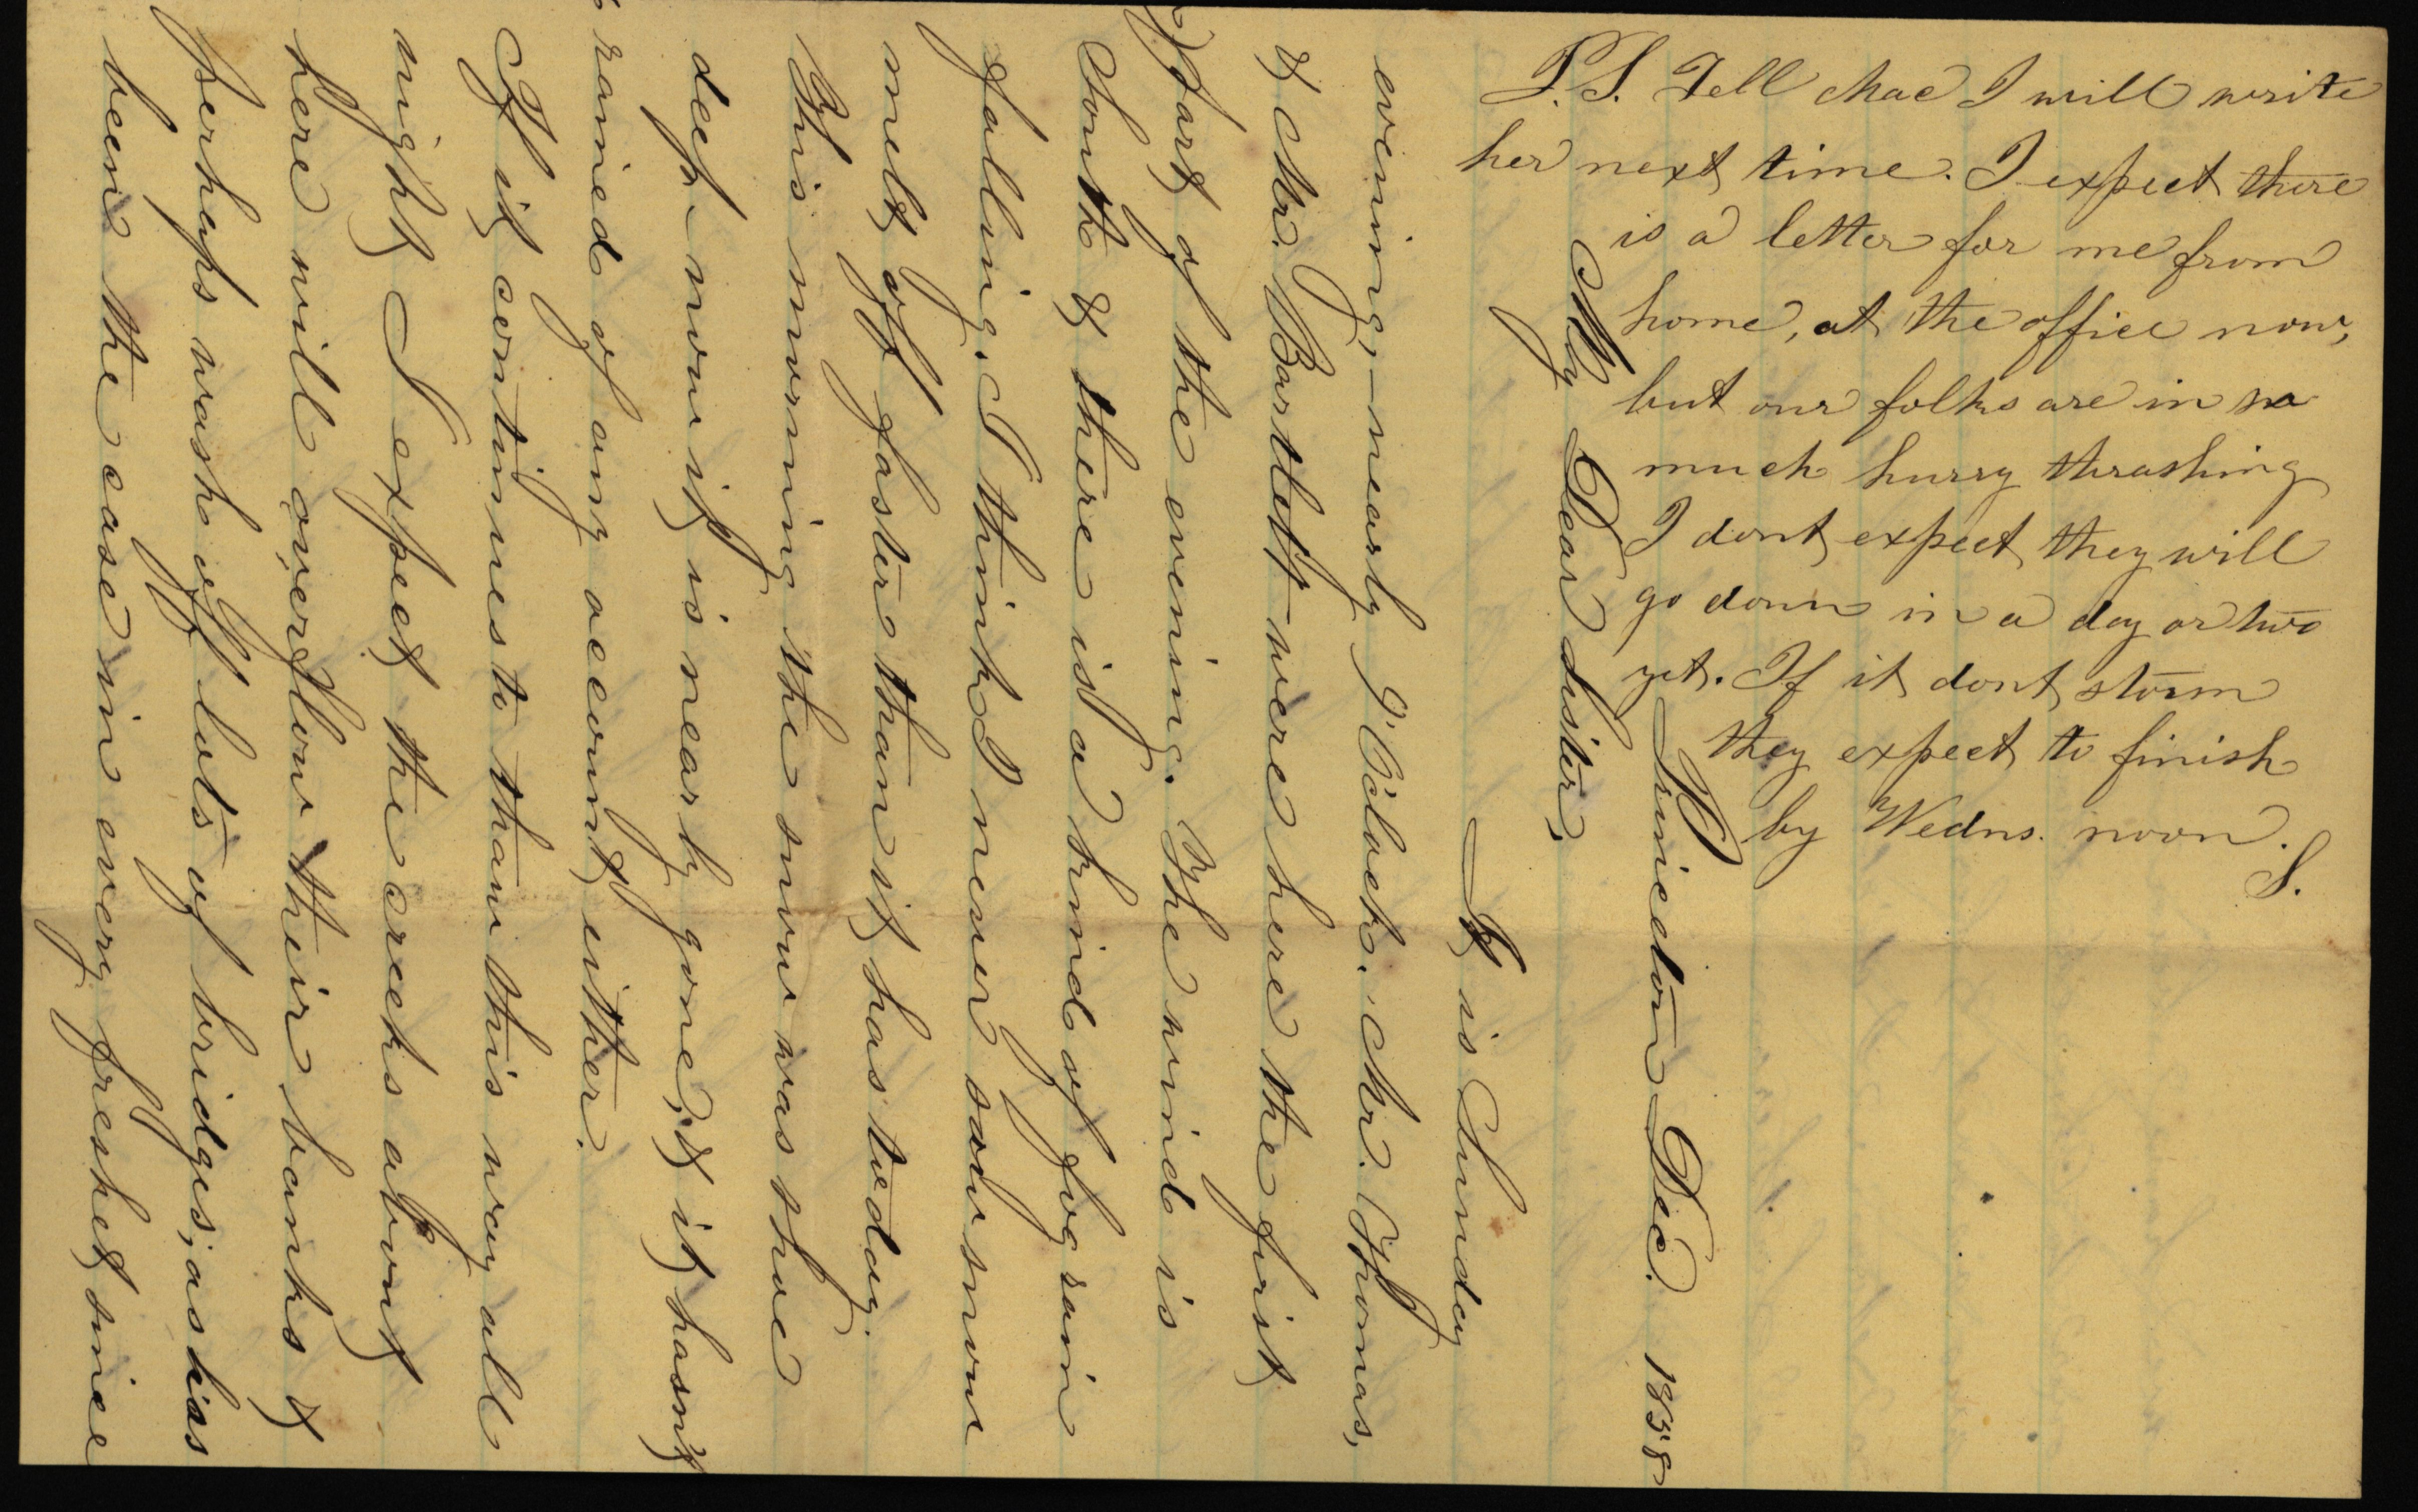 P.S. Tell Mac I will write
her next time. I expect there
is a letter for me from
home, at the office now,
but our folks are in so
much hurry thrashing
I dont expect they will
go down in a day or two
yet. If it dont storm
they expect to finish
by Wedns. noon.
S.
Princeton Dec. 1858
My Dear Sister,
It is Sunday
evening,—nearly 9 O'clock. Mr. Thomas,
& Mr. Bartlett were here the first
part of the evening. The wind is
South & there is a kind of fog rain
falling. I think I never saw snow
melt off faster than it has today.
This morning the snow was shoe
deep—now it is nearly gone, & it hasnt
rained of any account, either.
If it continues to thaw this way all
night I expect the creeks about
here will overflow their banks &
perhaps wash off lots of bridges, as has
been the case in every freshet since